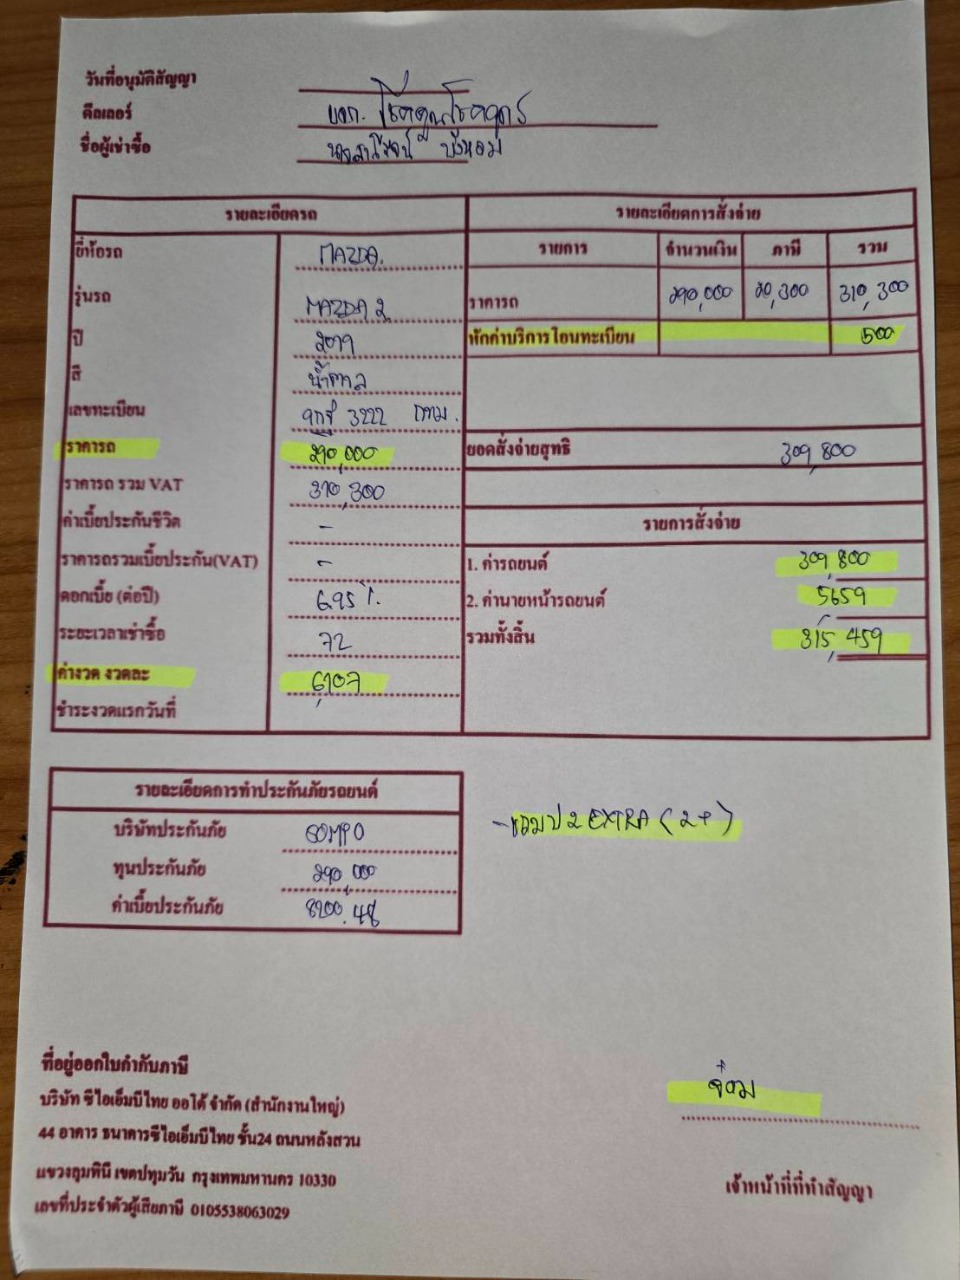 วันที่อนุมัติสัญญา
ดีลเลอร์ บจก. โชคคูณโชคถาวร
ชื่อผู้เช่าซื้อ
รายละเอียดรถ
ยี่ห้อรถ MAZDA.
รุ่นรถ MAZDA 2
ปี 2019
สี น้ำตาล
เลขทะเบียน 3222 กทม.
ราคารถ 290,000
ราคารถ รวม VAT 310,300
ค่าเบี้ยประกันชีวิต -
ราคารถรวมเบี้ยประกัน(VAT) -
ดอกเบี้ย (ต่อปี) 6.95 %
ระยะเวลาเช่าซื้อ 72
ค่างวด งวดละ 6,107
ชำระงวดแรกวันที่
รายละเอียดการสั่งจ่าย
รายการ จำนวนเงิน ภาษี รวม
ราคารถ 290,000 20,300 310,300
หักค่าบริการโอนทะเบียน 500
ยอดสั่งจ่ายสุทธิ 309,800
รายการสั่งจ่าย
1. ค่ารถยนต์ 309,800
2. ค่านายหน้ารถยนต์ 5659
รวมทั้งสิ้น 315,459
รายละเอียดการทำประกันภัยรถยนต์
บริษัทประกันภัย SOMPO
ทุนประกันภัย 290,000
ค่าเบี้ยประกันภัย 8200.48
2 EXTRA (2+)
ที่อยู่ออกใบกำกับภาษี
บริษัท ซีไอเอ็มบีไทย ออโต้ จำกัด (สำนักงานใหญ่)
44 อาคาร ธนาคารซีไอเอ็มบีไทย ชั้น24 ถนนหลังสวน
แขวงลุมพินี เขตปทุมวัน กรุงเทพมหานคร 10330
เลขที่ประจำตัวผู้เสียภาษี 0105538063029
จ๋อม
เจ้าหน้าที่ที่ทำสัญญา